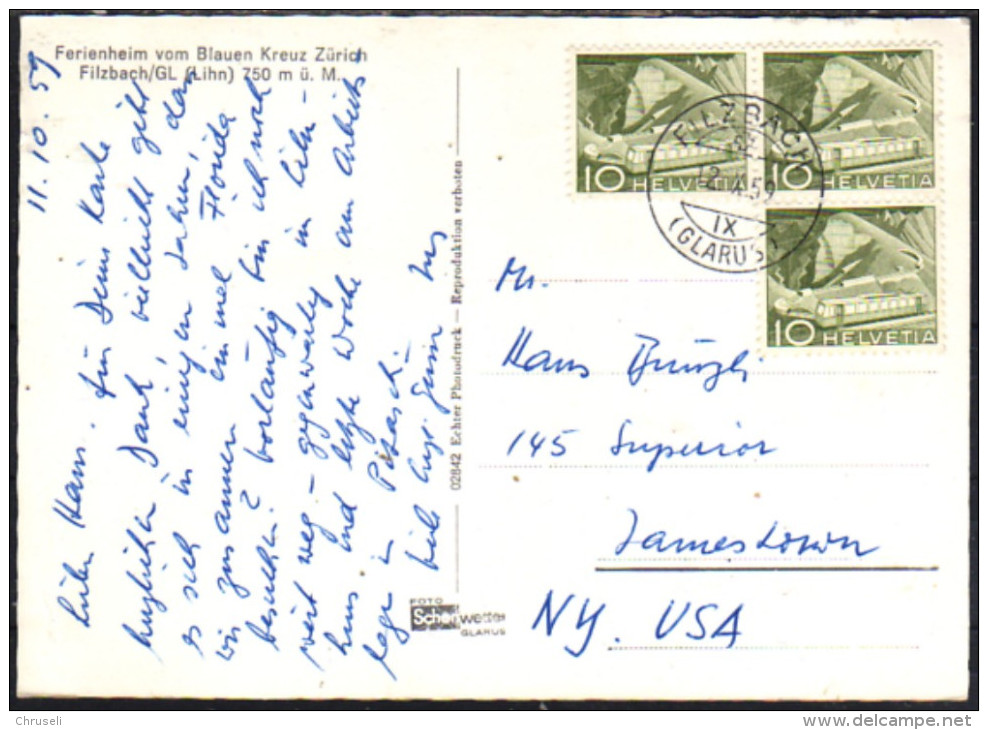 Ferienheim vom Blauen Kreuz Zürich
Filzbach/GL (Lihn) 750 m ü. M.
11.10.59
Lieber Hans. Für Deine Karte
herzlichen Dank, vielleicht geht
es sich in einigen Jahren, dass
wir zusammen einmal Florida
besuchen? Vorläufig bin ich noch
weit weg – gegenwärtig in Lihn –
haus und letzte Woche am Arbeits
lager in
viele Grüsse
02842 Echter Photodruck — Reproduktion verboten
FOTO
Schönwetter
GLARUS
10 HELVETIA
10 HELVETIA
10 HELVETIA
FILZBACH
12.X.59
IX
(GLARUS)
Mr.
Hans
145 Superior
Jamestown
NY. USA
Chruseli
delcampe.net